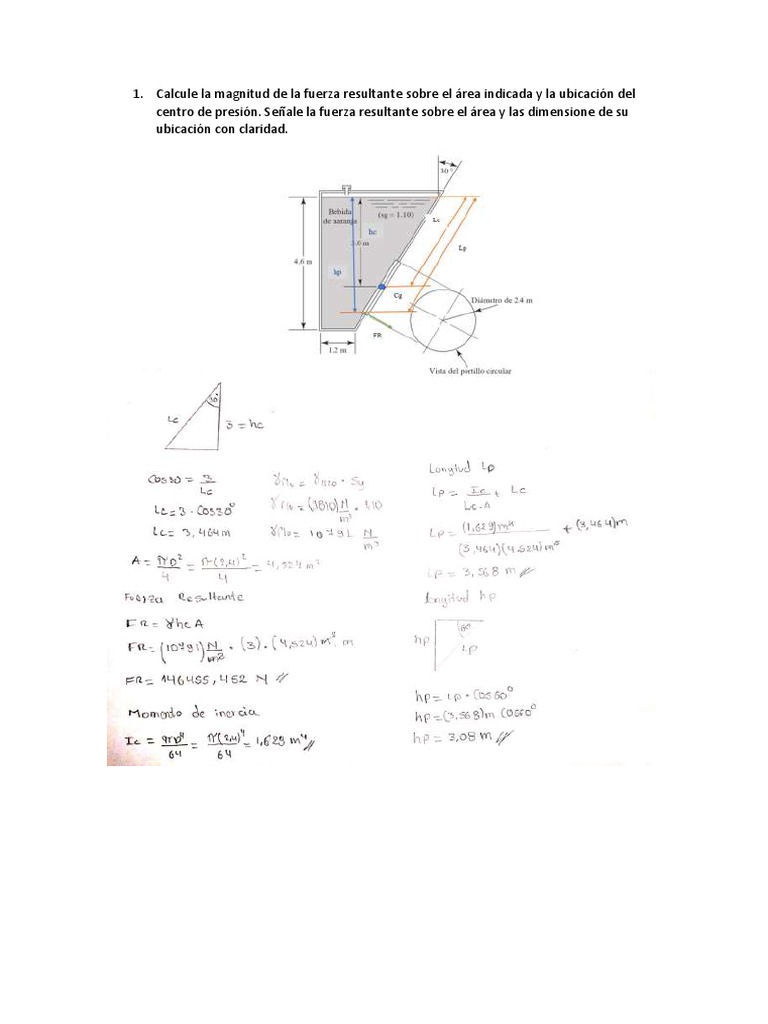 1. Calcule la magnitud de la fuerza resultante sobre el área indicada y la ubicación del
centro de presión. Señale la fuerza resultante sobre el área y las dimensione de su
ubicación con claridad.
30°
Bebida
de naranja
(sg = 1.10)
hc
3.0 m
4.6 m
hp
Lc
Lp
Cg
FR
1.2 m
Diámetro de 2.4 m
Vista del portillo circular
Lc
30°
3 = hc
Cos30 = 3/Lc
Lc = 3 · Cos30°
Lc = 3,464 m
A = πD²/4 = π(2,4)²/4 = 4,524 m²
Fuerza Resultante
FR = γhcA
FR = (10791) N/m³ · (3) · (4,524) m² · m
FR = 146455,452 N //
Momento de inercia
Ic = πD⁴/64 = π(2,4)⁴/64 = 1,629 m⁴ //
= γH2O · Sg
= 10791 N/m³
Longitud Lp
Lp = Ic/Lc·A + Lc
Lp = (1,629)m⁴/(3,464)(4,524)m³ + (3,464)m
Lp = 3,568 m //
Longitud hp
hp
60°
Lp
hp = Lp · Cos60°
hp = (3,568)m Cos60°
hp = 3,08 m //